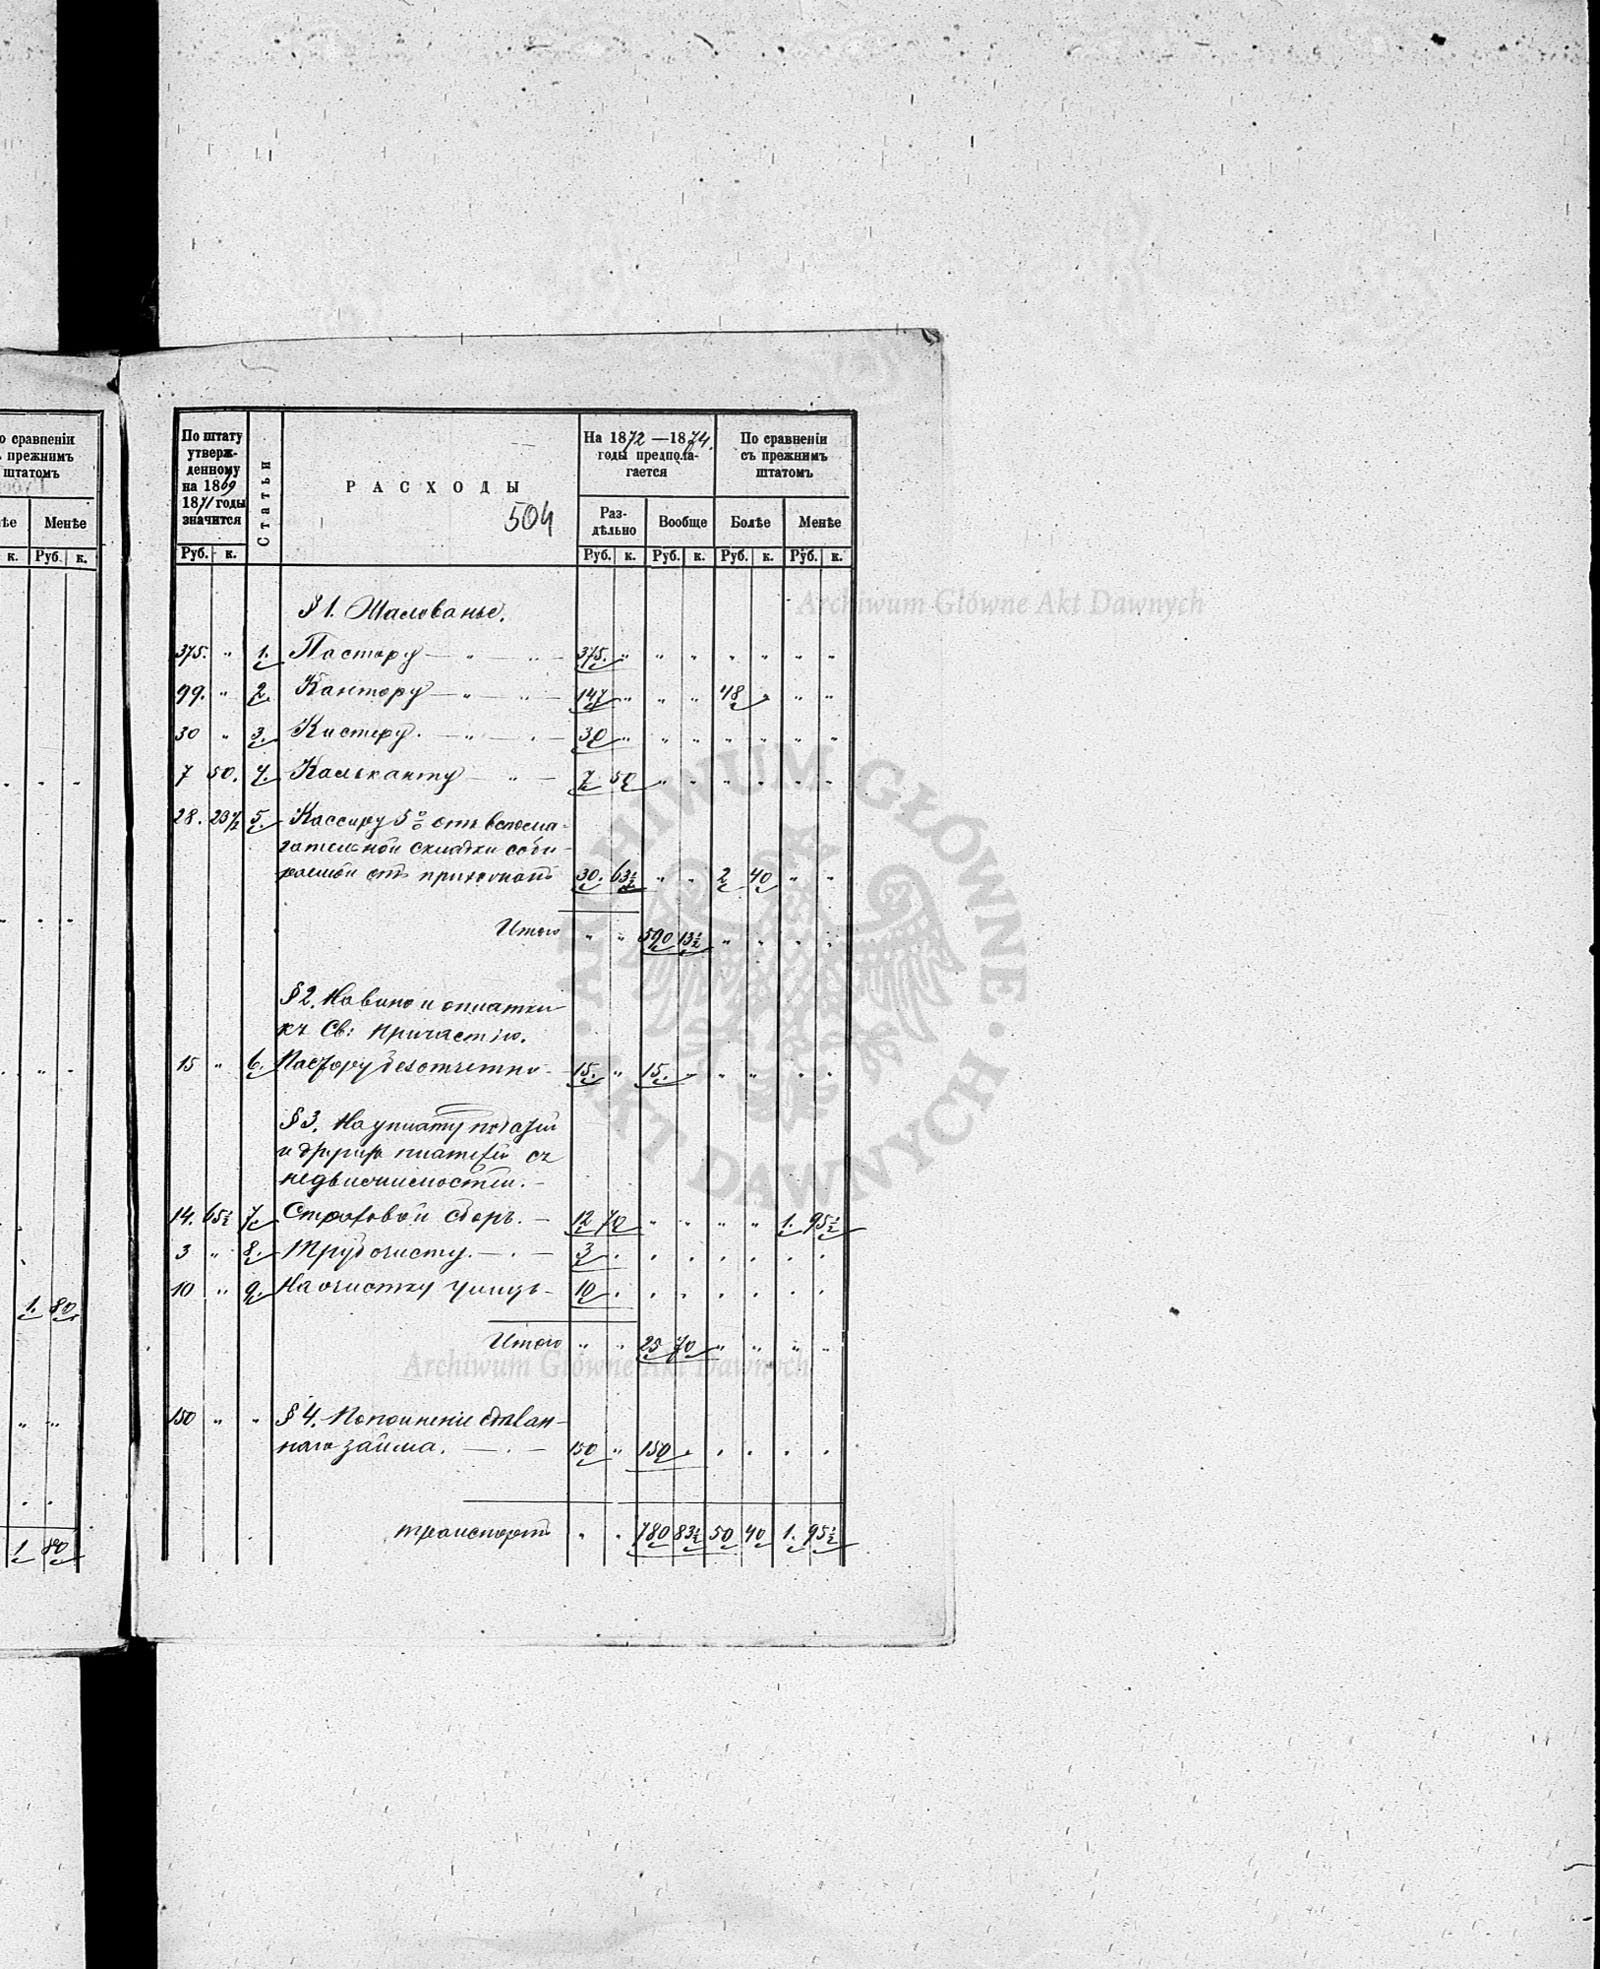 о сравненіи
ъ прежнимъ
штатомъ
ѣе Менѣе
к. Руб. к.
1. 80
1 80
По штату утверж-денному на 1869 1871 годы значится
Статьи
РАСХОДЫ
504
На 1872—1874. годы предпола-гается
По сравненіи съ прежнимъ штатомъ
Раз-дѣльно Вообще Болѣе Менѣе
Руб. к. Руб. к. Руб. к. Руб. к. Руб. к.
§ 1. Жалованье.
375. " 1. Пастору — " — " — 375. " " " " " " "
99. " 2. Кантору — " — " — 147 " " " 48 " " "
30 " 3. Кистеру. — " — " — 30 " " " " " " "
7 50. 4. Кальканту — " — 7 50 " " " " " "
28. 23½ 5. Кассиру 5% отъ вспома-
гательной складки соби-
раемой отъ прихожанъ 30. 63½ " " 2 40 " "
Итого " " 590 13½ " " " "
§ 2. На вино и оплатки
къ Св: Причастію.
15 " 6. Пастору безотчетно - 15. " 15. " " " " "
§ 3. На уплату податей
и другихъ платежей съ
недвижимостей. -
14. 65½ 7. Страховой сборъ. — 12 70 " " " " 1. 95½
3 " 8. Трубочисту. — . — 3 . . . . . . .
10 " 9. На очистку улицъ - 10 . . . . . . .
Итого " " 25 70 " " " "
150 " " § 4. Пополненіе сдѣлан-
наго займа. — . — 150 " 150 . . . . .
транспортъ " . 780 83½ 50 40 1. 95½
Archiwum Główne Akt Dawnych
ARCHIWUM GŁÓWNE · AKT DAWNYCH ·
Archiwum Główne Akt Dawnych